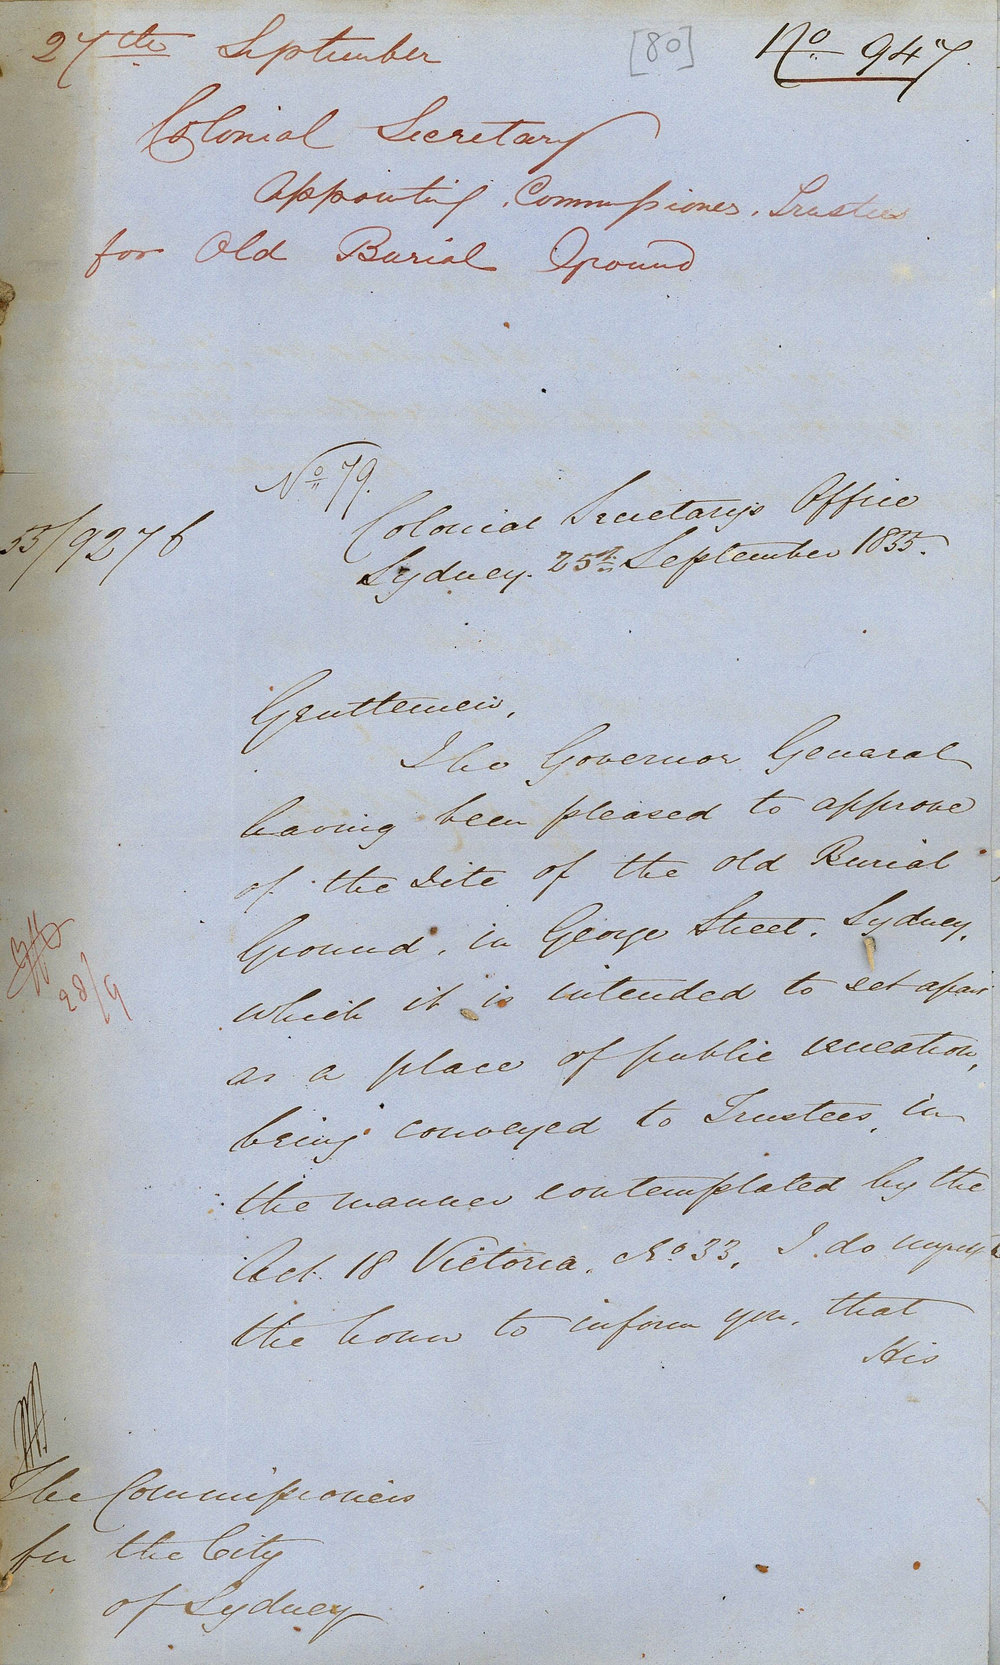 27th September [80] No 947.
Colonial Secretary
Appointing Commissioners, Trustees
for Old Burial Ground
No 79.
55/9276
Colonial Secretary's Office
Sydney. 25th September 1855.
Gentlemen,
The Governor General
having been pleased to approve
of the Site of the old Burial
Ground, in George Street, Sydney,
which it is intended to set apart
as a place of public recreation,
28/9
being conveyed to Trustees, in
the manner contemplated by the
Act. 18 Victoria, No. 33, I do myself
the honor to inform you, that
His
The Commissioners
for the City
of Sydney